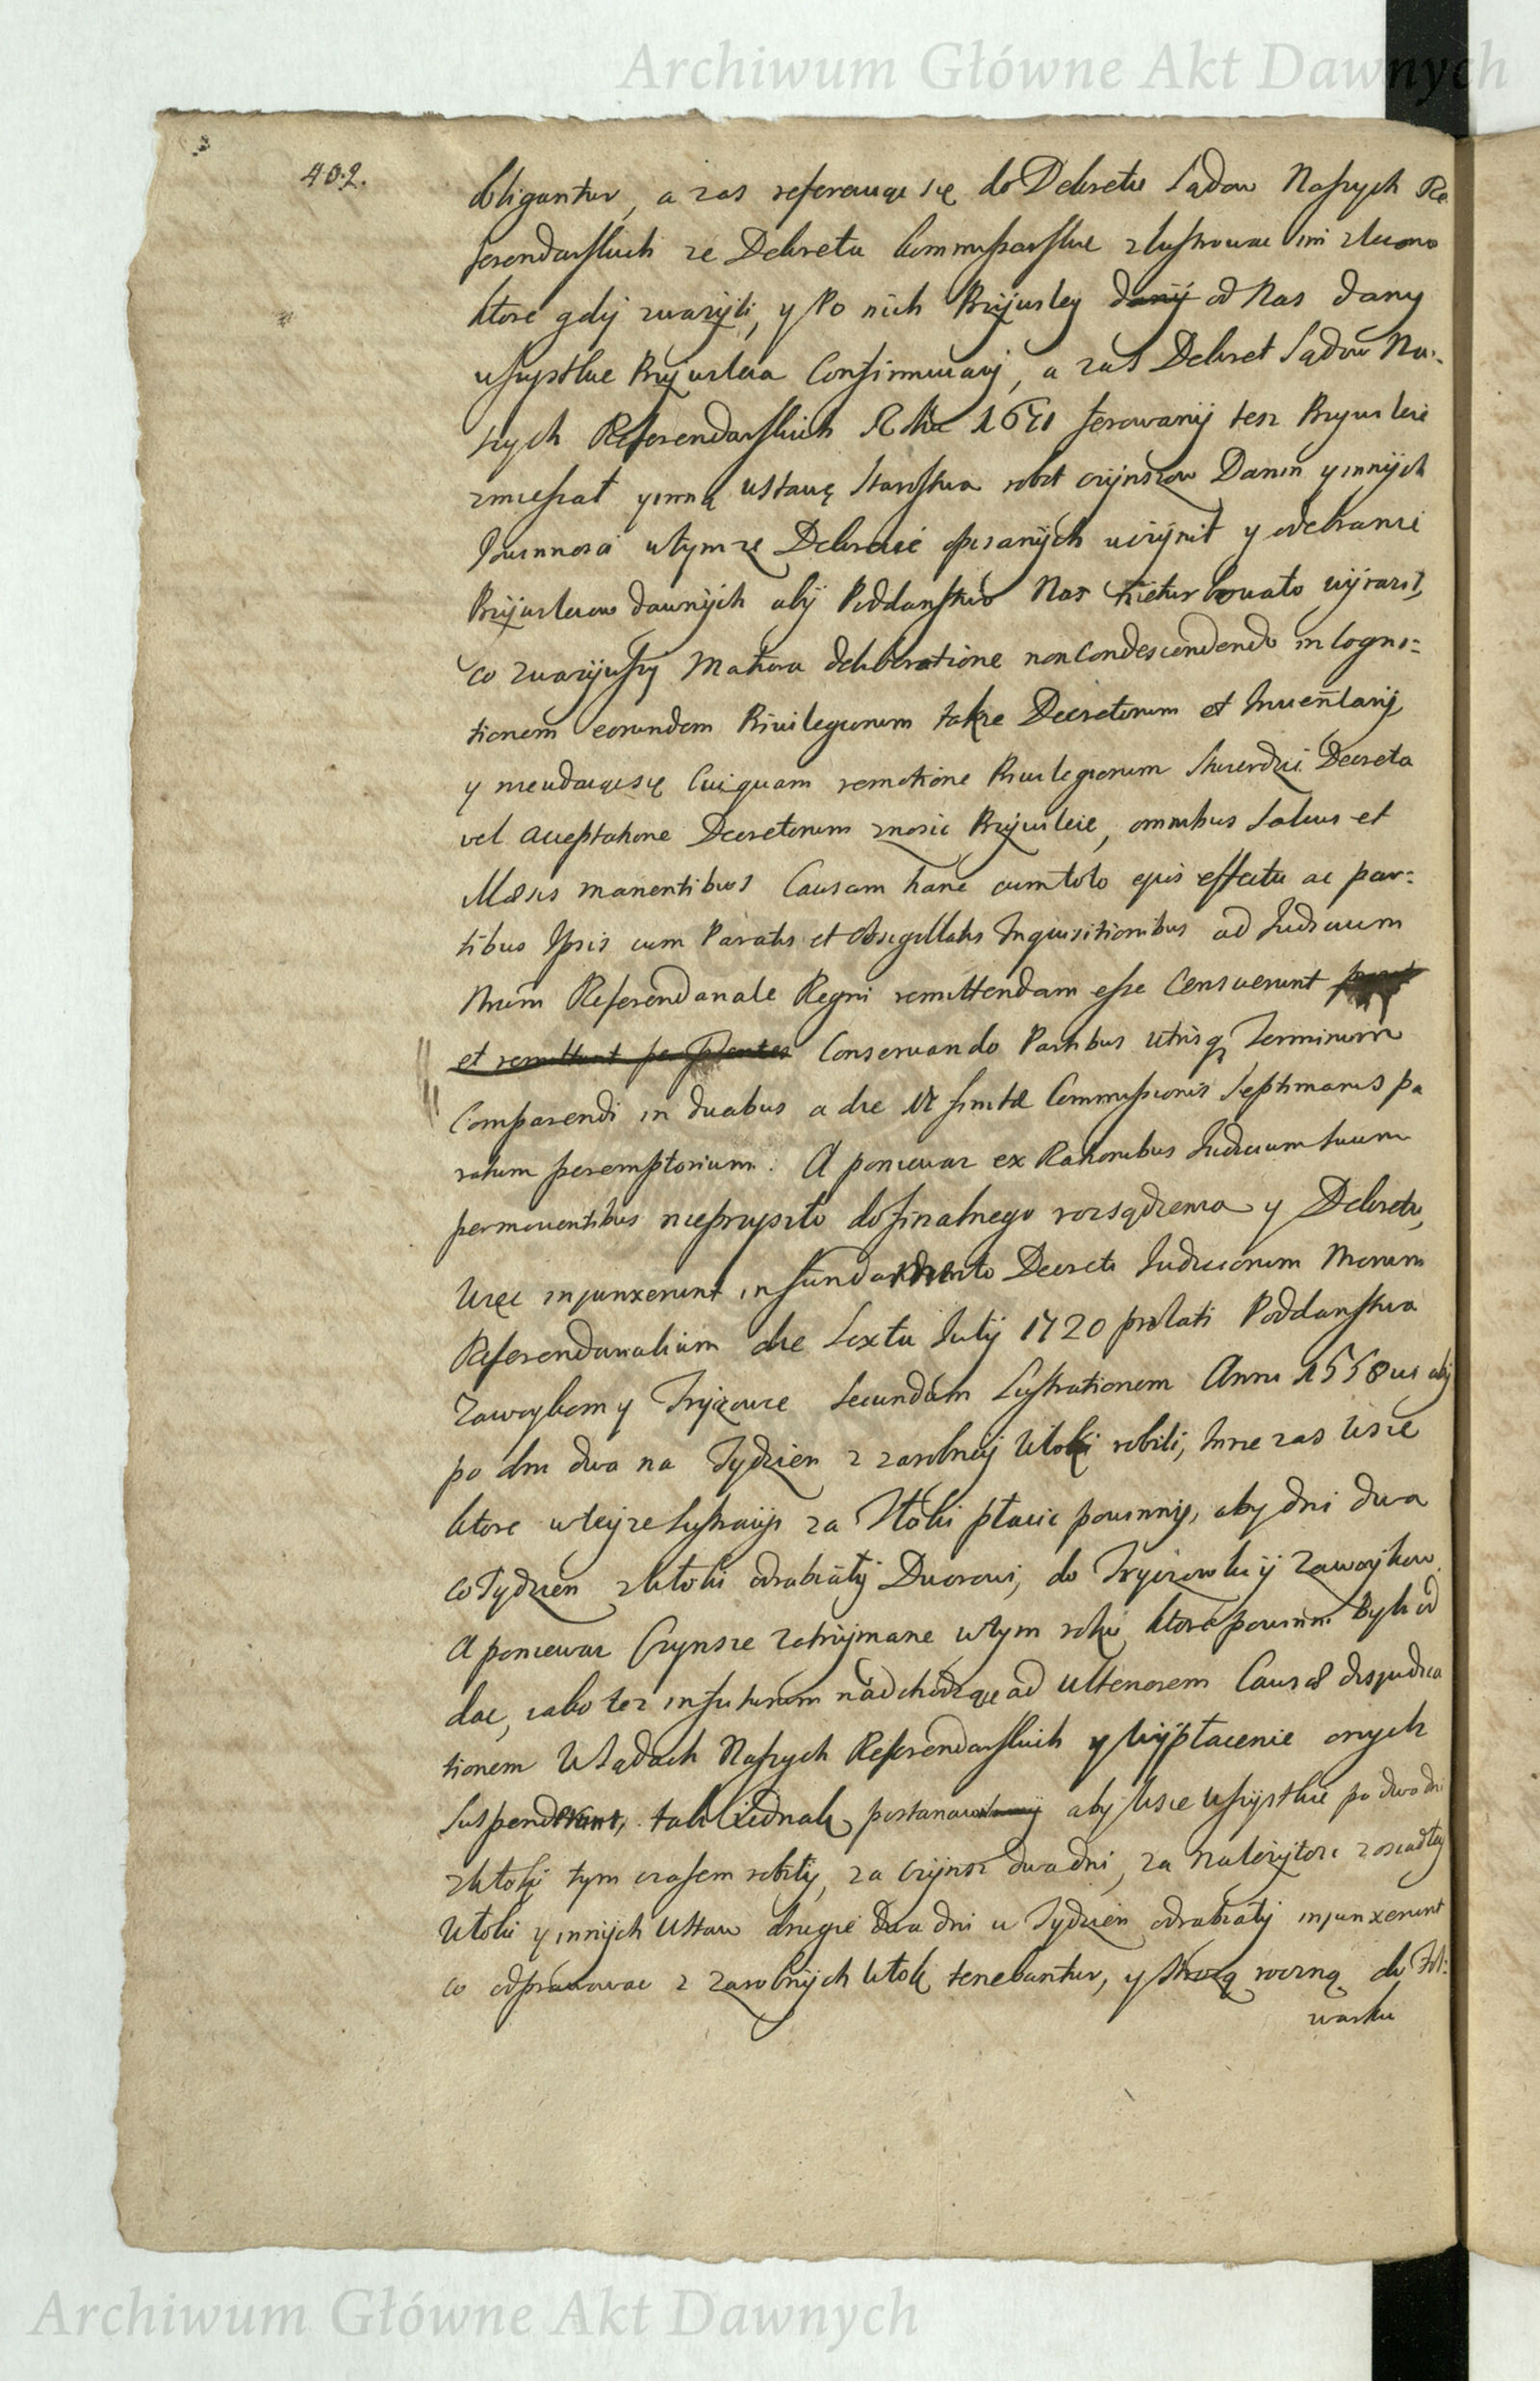 Archiwum Główne Akt Dawnych
402.
obligantur, a zas referuiąc się do Dekretu Sądow Naszych Re
ferendarskich ze Dekreta Kommissarskie zlustrowac im zlecono
ktore gdy zwazyli, y Po nich Przywiley dany od Nas dany
wszystkie Przywileia Confirmuiący, a zas Dekret Sądow Na:
szych Referendarskich Roku 1671 ferowany tesz Przywileie
zmieszał y inną Ustawę Starostwa robot czynszow Danin y innych
Powinnosci w tymze Dekrecie opisanych uczynił y odebranie
Przywileiow dawnych aby Poddanstwo Nas nieturbowało wyraził,
co zwazywszy Matura deliberatione non Condescendendo in Cogni:
tionem eorundem Privilegiorum takze Decretorum et Inventarij,
y nieudaiąc się Cuiquam remotione Privilegiorum stwierdzic Decreta
vel acceptatione Decretorum znosic Przywileie, omnibus Salvis et
Illæsis manentibus Causam hanc cum toto ejus effectu ac par:
tibus Ipsis cum Paratis et Obsigillatis Inquisitionibus ad Judicium
Nrum Referendariale Regni remittendam esse Censuerunt
et remittunt Conservando Partibus Utrisq Terminum
Comparendi in duabus a die finitæ Commissionis Septimanis pa
ratum peremptorium. A poniewaz ex Rationibus Judicium Suum
permoventibus nieprzyszło do finalnego rozsądzenia y Dekretu,
Więc injunxerunt in fundamento Decreti Judiciorum Nrorum
Referendarialium die Sexta Julij 1720 prolati Poddanstwa
Zawoykom y Tryzowce Secundum Lustrationem Anni 1558 aby
po dni dwa na Tydzien z zarobney Włoki robili, Inne zas Wsie
ktore w teyze Lustracyi za Tłoki płacic powinny, aby dni dwa
co Tydzien z Włoki odrabiały Dworowi, do Tryzowki y Zawoykow.
A poniewaz Czynsze zatrzymane w tym roku ktore powinni Byli od
dac, iako tez in futurum nadchodzące ad Ulteriorem Causæ disjudica
tionem W Sądach Naszych Referendarskich y Wypłacenie onych
Suspenderunt, tak iednak postanawiamy aby Wsie wszystkie po dwa dni
z Włoki tym czasem robiły, za czynsz dwa dni, za nalezytosc z osiadłey
Włoki y innych Ustaw drugie dwa dni w Tydzien odrabiały injunxerunt
co odprawowac z zarobnych Włok tenebuntur, y Strozą roczną do Fol:
warku
Archiwum Główne Akt Dawnych